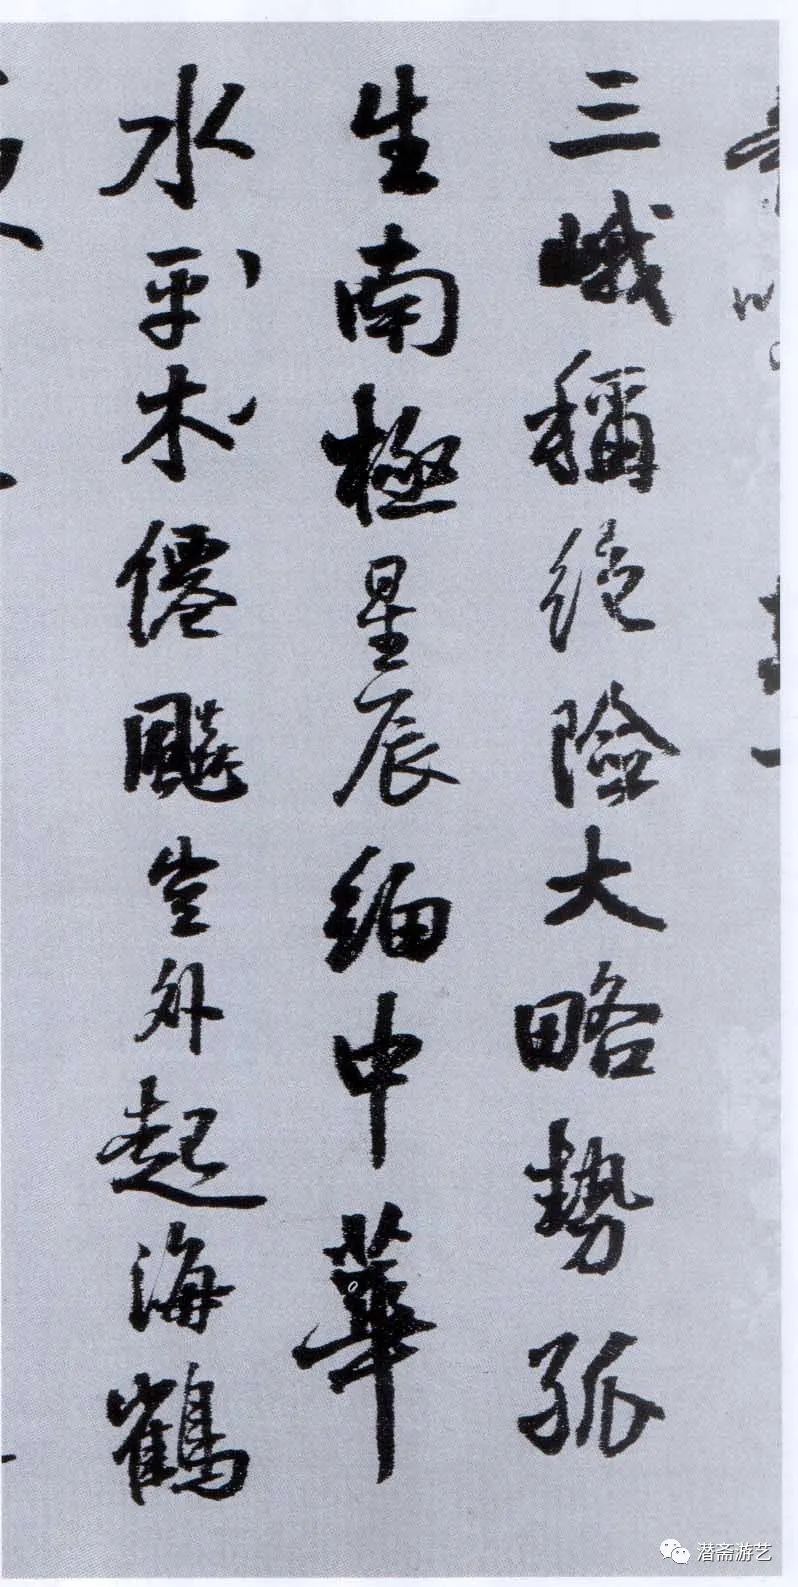 三峨稱絕險大略勢孤
生南極星辰細中華
水平木僊飈空外起海鶴
潜斋游艺